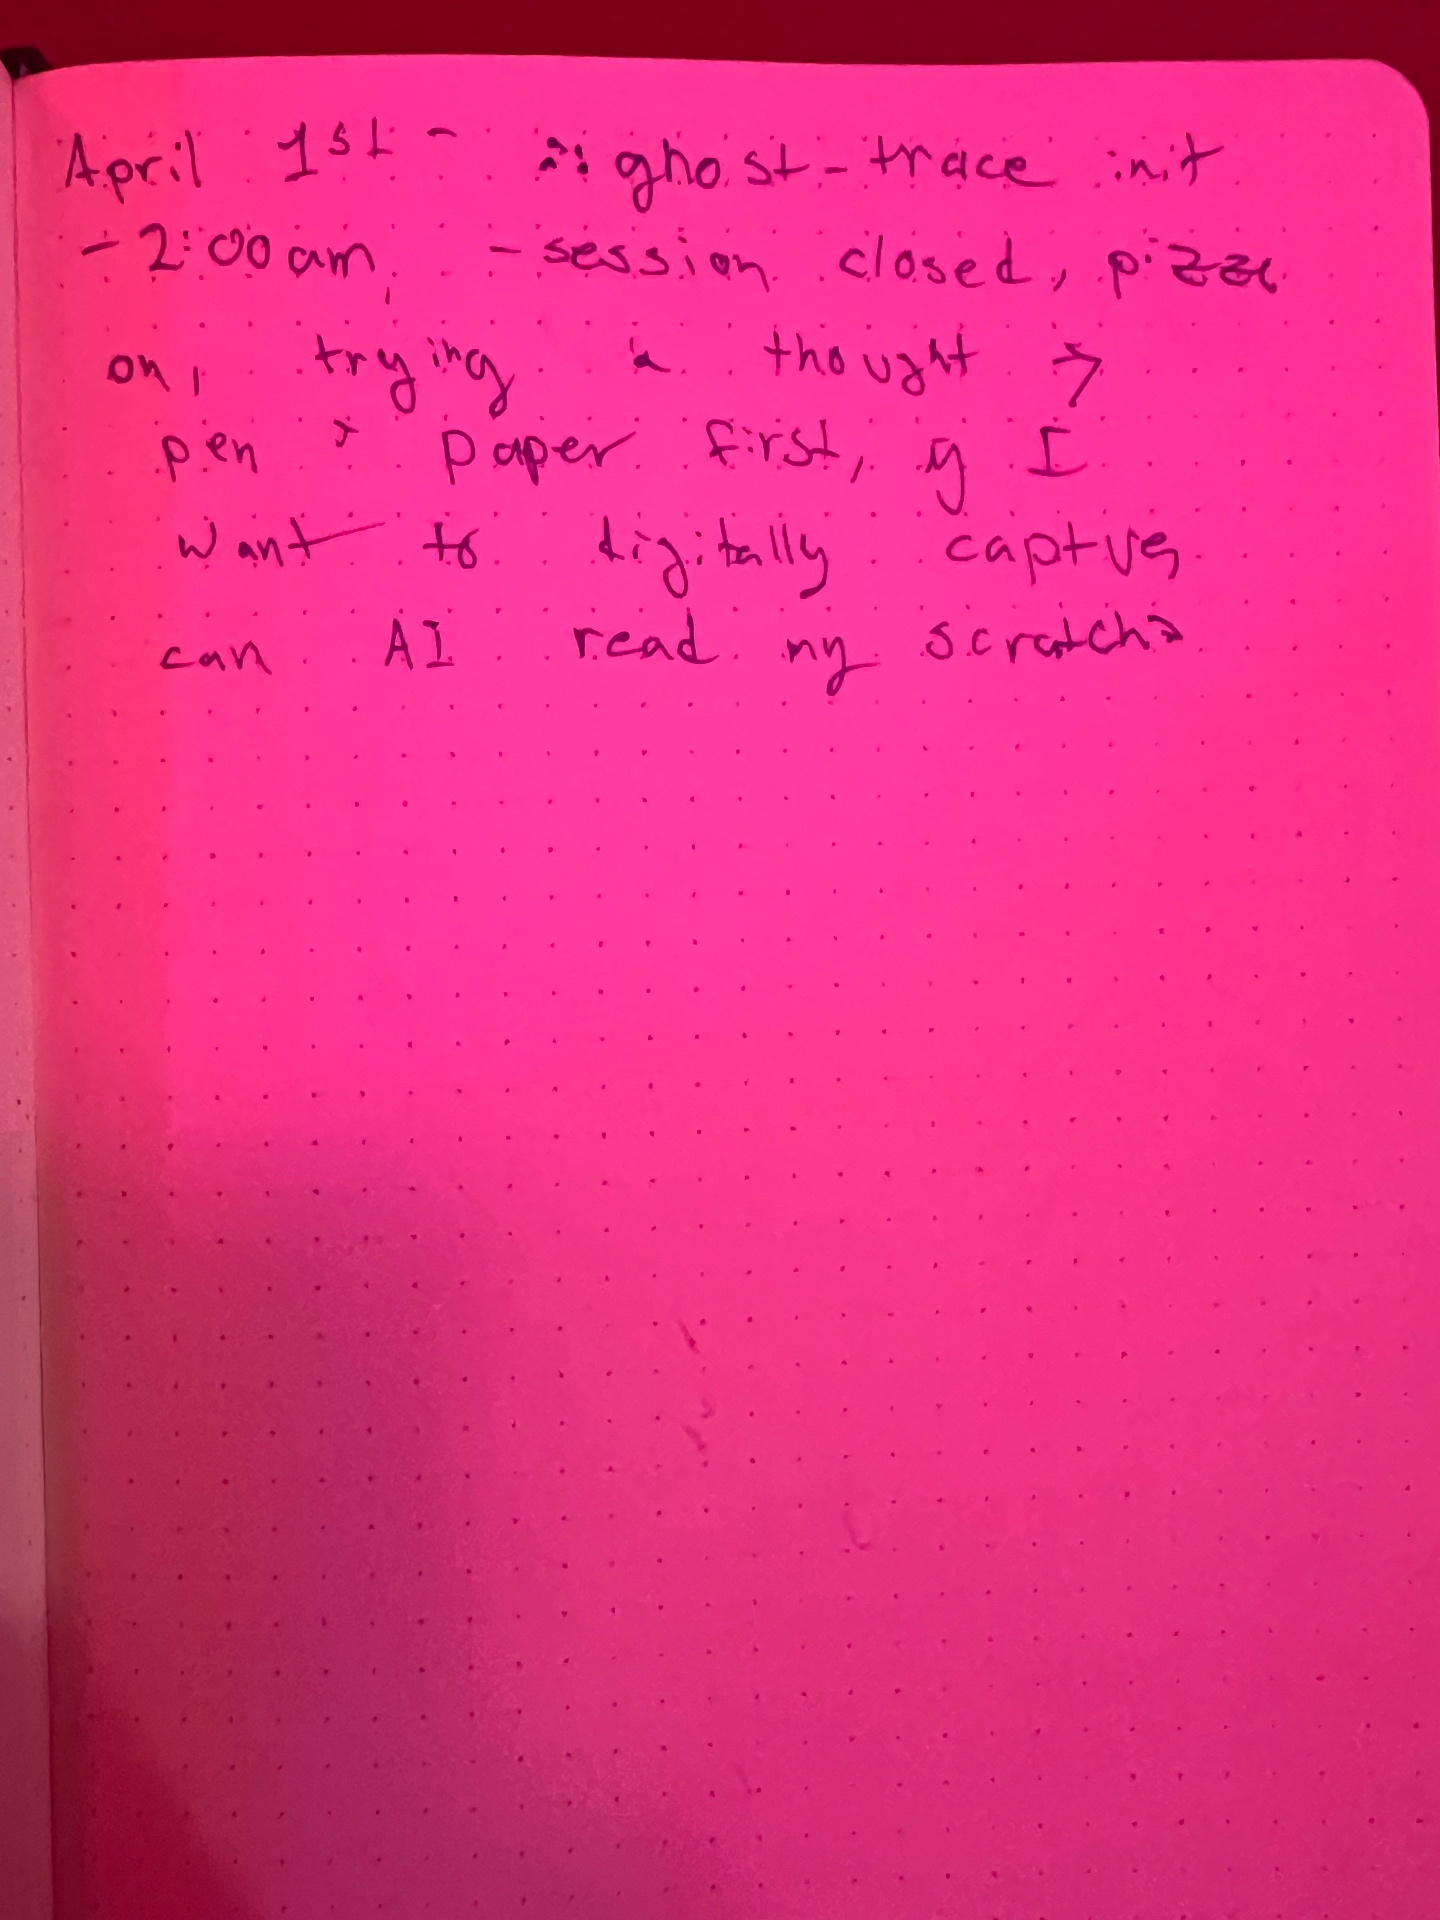 April 1st - ∴ ghost-trace init
- 2:00am, - session closed, pizza
on, trying a thought →
pen + paper first, if I
want to digitally capture
can AI read my scratch?